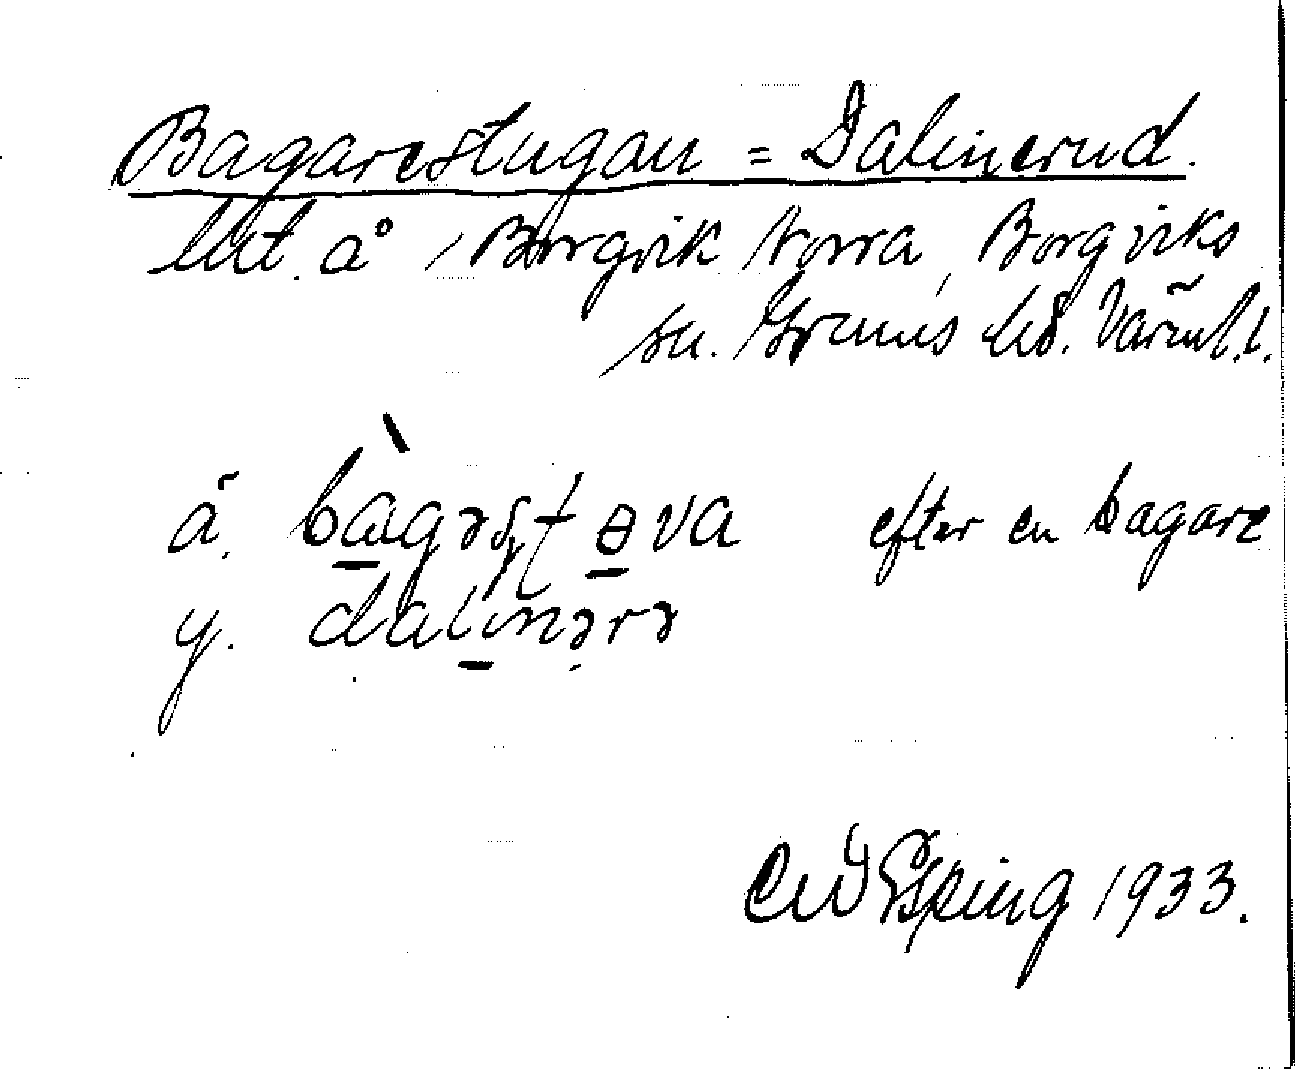 Bagarestugan = Dalinerud.
lht. å Borgvik Norra, Borgviks
sn. Grums hd. Värml. l.
ä. bàgərstɵva efter en bagare
y. dalinərə
Esping 1933.